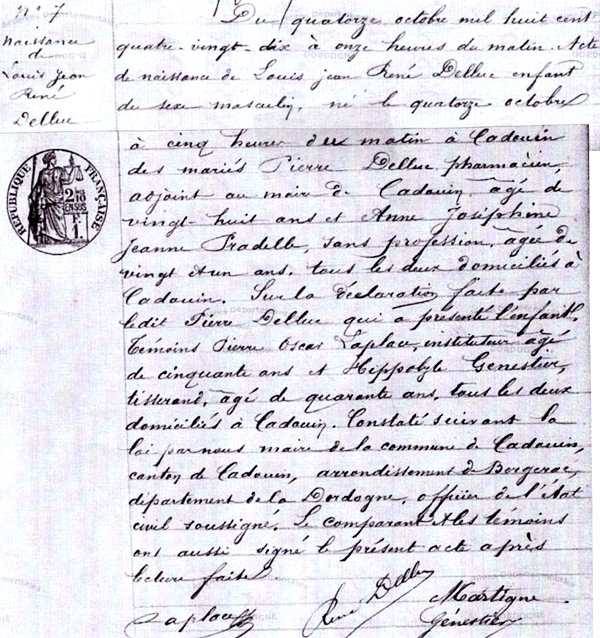 N° 7
Naissance
de
Louis Jean
René
Delluc
Du quatorze octobre mil huit cent
quatre-vingt-dix à onze heures du matin. Acte
de naissance de Louis jean René Delluc enfant
du sexe masculin, né le quatorze octobre
à cinq heures du matin à Cadouin
des mariés Pierre Delluc pharmacien,
adjoint au maire de Cadouin âgé de
vingt huit ans et Anne Joséphine
Jeanne Pradelle, sans profession, agée de
vingt et un ans, tous les deux domiciliés à
Cadouin. Sur la déclaration faite par
ledit Pierre Delluc qui a présenté l'enfant.
Témoins Pierre Oscar Laplace, instituteur agé
de cinquante ans et Hippolyte Genestier,
tisserand, agé de quarante ans, tous les deux
domiciliés à Cadouin. Constaté suivant la
loi par nous maire de la commune de Cadouin,
canton de Cadouin, arrondissement de Bergerac,
département de la Dordogne, officier de l'état
civil soussigné. Le comparant et les témoins
ont aussi signé le présent acte après
lecture faite.
Laplace
René Delluc
Martigne
Génestier
RÉPUBLIQUE FRANÇAISE